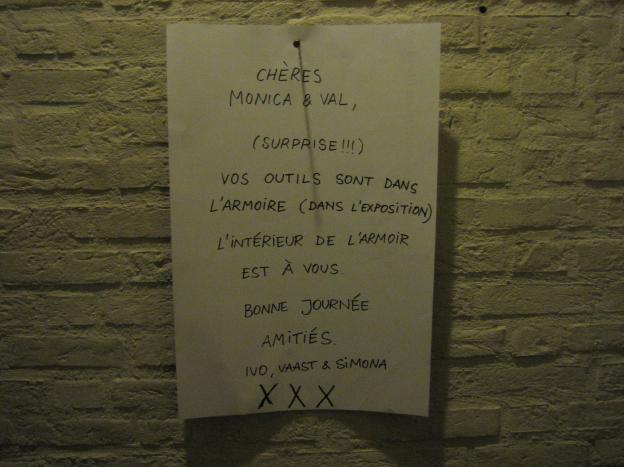 CHÈRES
MONICA & VAL,
(SURPRISE!!!)
VOS OUTILS SONT DANS
L'ARMOIRE (DANS L'EXPOSITION)
L'INTÉRIEUR DE L'ARMOIR
EST À VOUS.
BONNE JOURNÉE
AMITIÉS.
IVO, VAAST & SIMONA
X X X